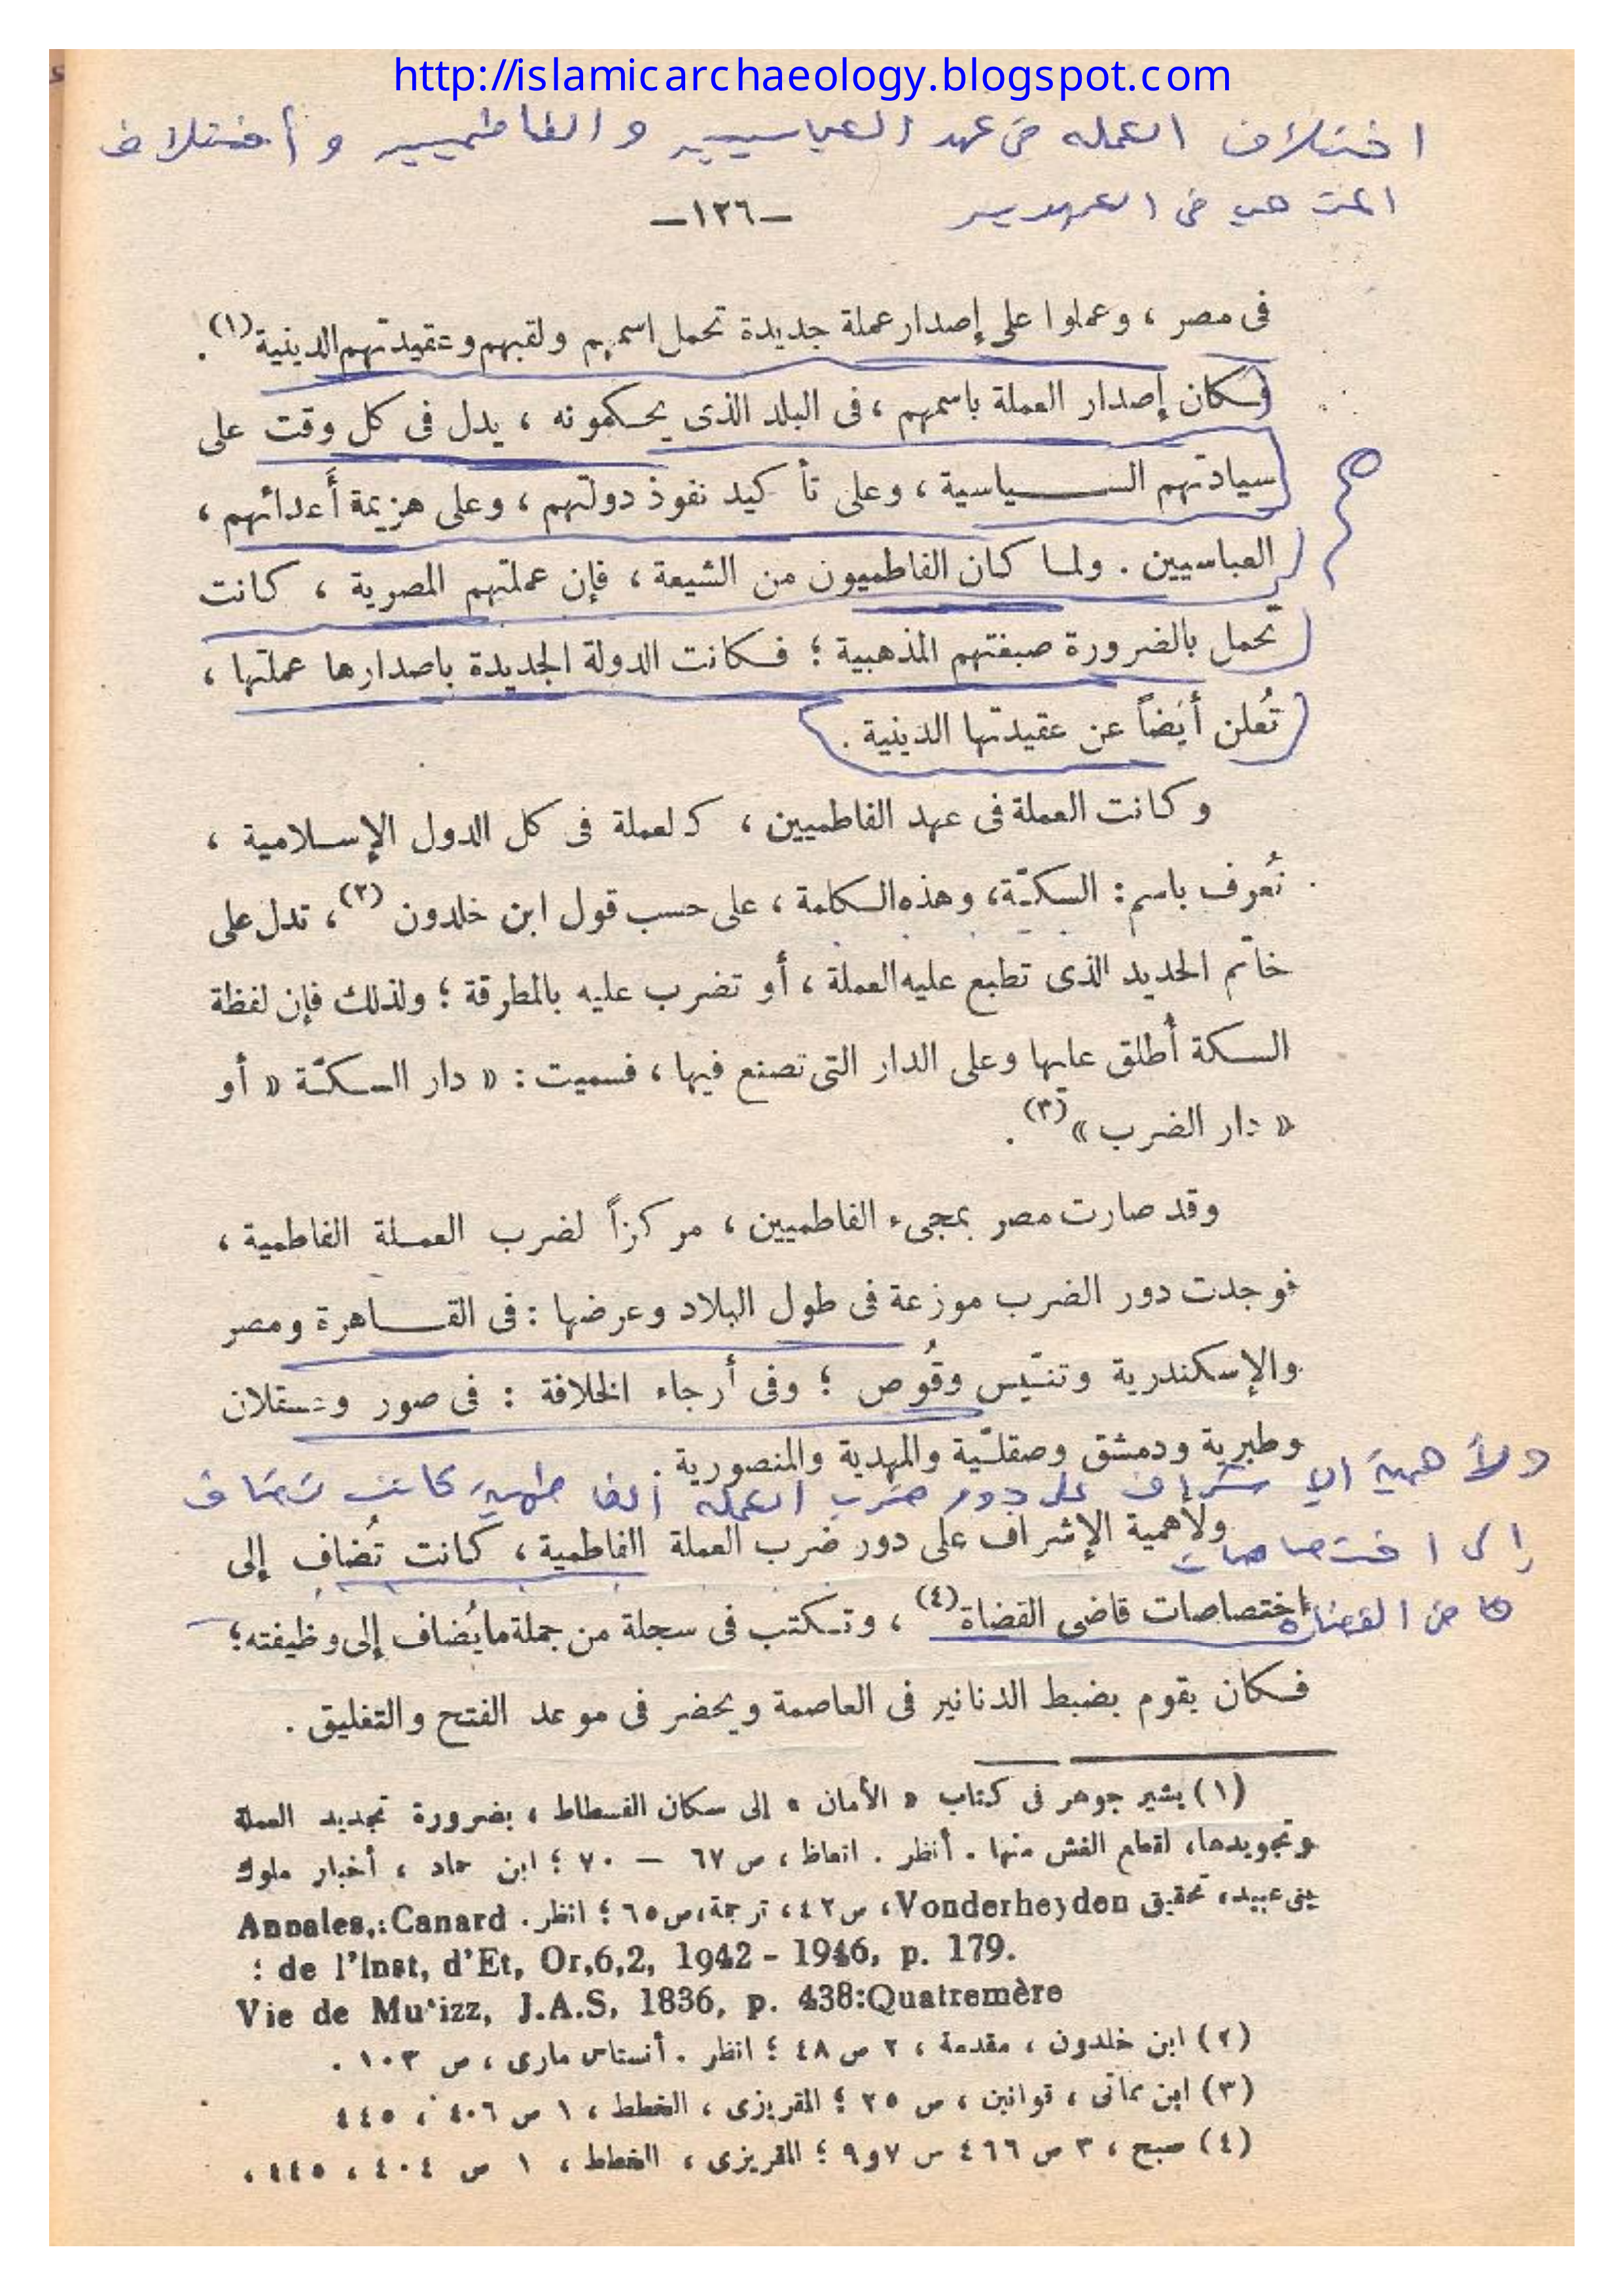 http://islamicarchaeology.blogspot.com
اختلاف العمله فى عهد العباسيين و الفاطميين و أختلاف
المذهب فى العهدين
—١٢٦—
فى مصر ، وعملوا على إصدار عملة جديدة تحمل اسمهم ولقبهم وعقيدتهم الدينية (١) .
فكان إصدار العملة باسمهم ، فى البلد الذى يحكمونه ، يدل فى كل وقت على
سيادتهم السياسية ، وعلى تأكيد نفوذ دولتهم ، وعلى هزيمة أعدائهم ،
العباسيين . ولما كان الفاطميون من الشيعة ، فإن عملتهم المصرية ، كانت
تحمل بالضرورة صبغتهم المذهبية ؛ فكانت الدولة الجديدة باصدارها عملتها ،
تُعلن أيضاً عن عقيدتها الدينية .
وكانت العملة فى عهد الفاطميين ، كالعملة فى كل الدول الإسلامية ،
تُعرف باسم : السكّة ، وهذه الكلمة ، على حسب قول ابن خلدون (٢) ، تدل على
خاتم الحديد الذى تطبع عليه العملة ، أو تضرب عليه بالمطرقة ؛ ولذلك فإن لفظة
السكة أُطلق عليها وعلى الدار التى تصنع فيها ، فسميت : « دار السكّة « أو
« دار الضرب » (٣) .
وقد صارت مصر بمجىء الفاطميين ، مركزاً لضرب العملة الفاطمية ،
فوجدت دور الضرب موزعة فى طول البلاد وعرضها : فى القاهرة ومصر
والإسكندرية وتنّيس وقُوص ؛ وفى أرجاء الخلافة : فى صور وعسقلان
وطبرية ودمشق وصقلّية والمهدية والمنصورية .
ولأهمية الإشراف على دور ضرب العمله الفاطمية كانت تضاف
ولأهمية الإشراف على دور ضرب العملة الفاطمية ، كانت تُضاف إلى
إلى اختصاصات
اختصاصات قاضى القضاة (٤) ، وتكتب فى سجلة من جملة ما يُضاف إلى وظيفته ؛
قاضى القضاه
فكان يقوم بضبط الدنانير فى العاصمة ويحضر فى موعد الفتح والتغليق .
(١) يشير جوهر فى كتاب « الأمان » إلى سكان الفسطاط ، بضرورة تجديد العملة
وتجويدها ، لقطع الغش منها . أنظر . اتعاظ ، ص ٦٧ — ٧٠ ؛ ابن حماد ، أخبار ملوك
بنى عبيد ، تحقيق Vonderheyden ، ص ٤٢ ، ترجمة ، ص ٦٥ ؛ انظر . Annales,:Canard
: de l'Inst, d'Et, Or,6,2, 1942 - 1946, p. 179.
Vie de Mu'izz, J.A.S, 1836, p. 438:Quatremère
(٢) ابن خلدون ، مقدمة ، ٢ ص ٤٨ ؛ انظر . أنستاس مارى ، ص ١٠٣ .
(٣) ابن مماتى ، قوانين ، ص ٢٥ ؛ المقريزى ، الخطط ، ١ ص ٤٠٦ ، ٤٤٥
(٤) صبح ، ٣ ص ٤٦٦ س ٧و٩ ؛ المقريزى ، الخطط ، ١ ص ٤٠٤ ، ٤٤٥ ،